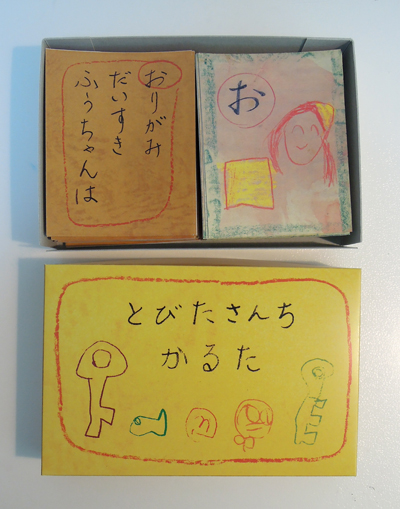 おりがみ
だいすき
ふうちゃんは
お
とびたさんち
かるた